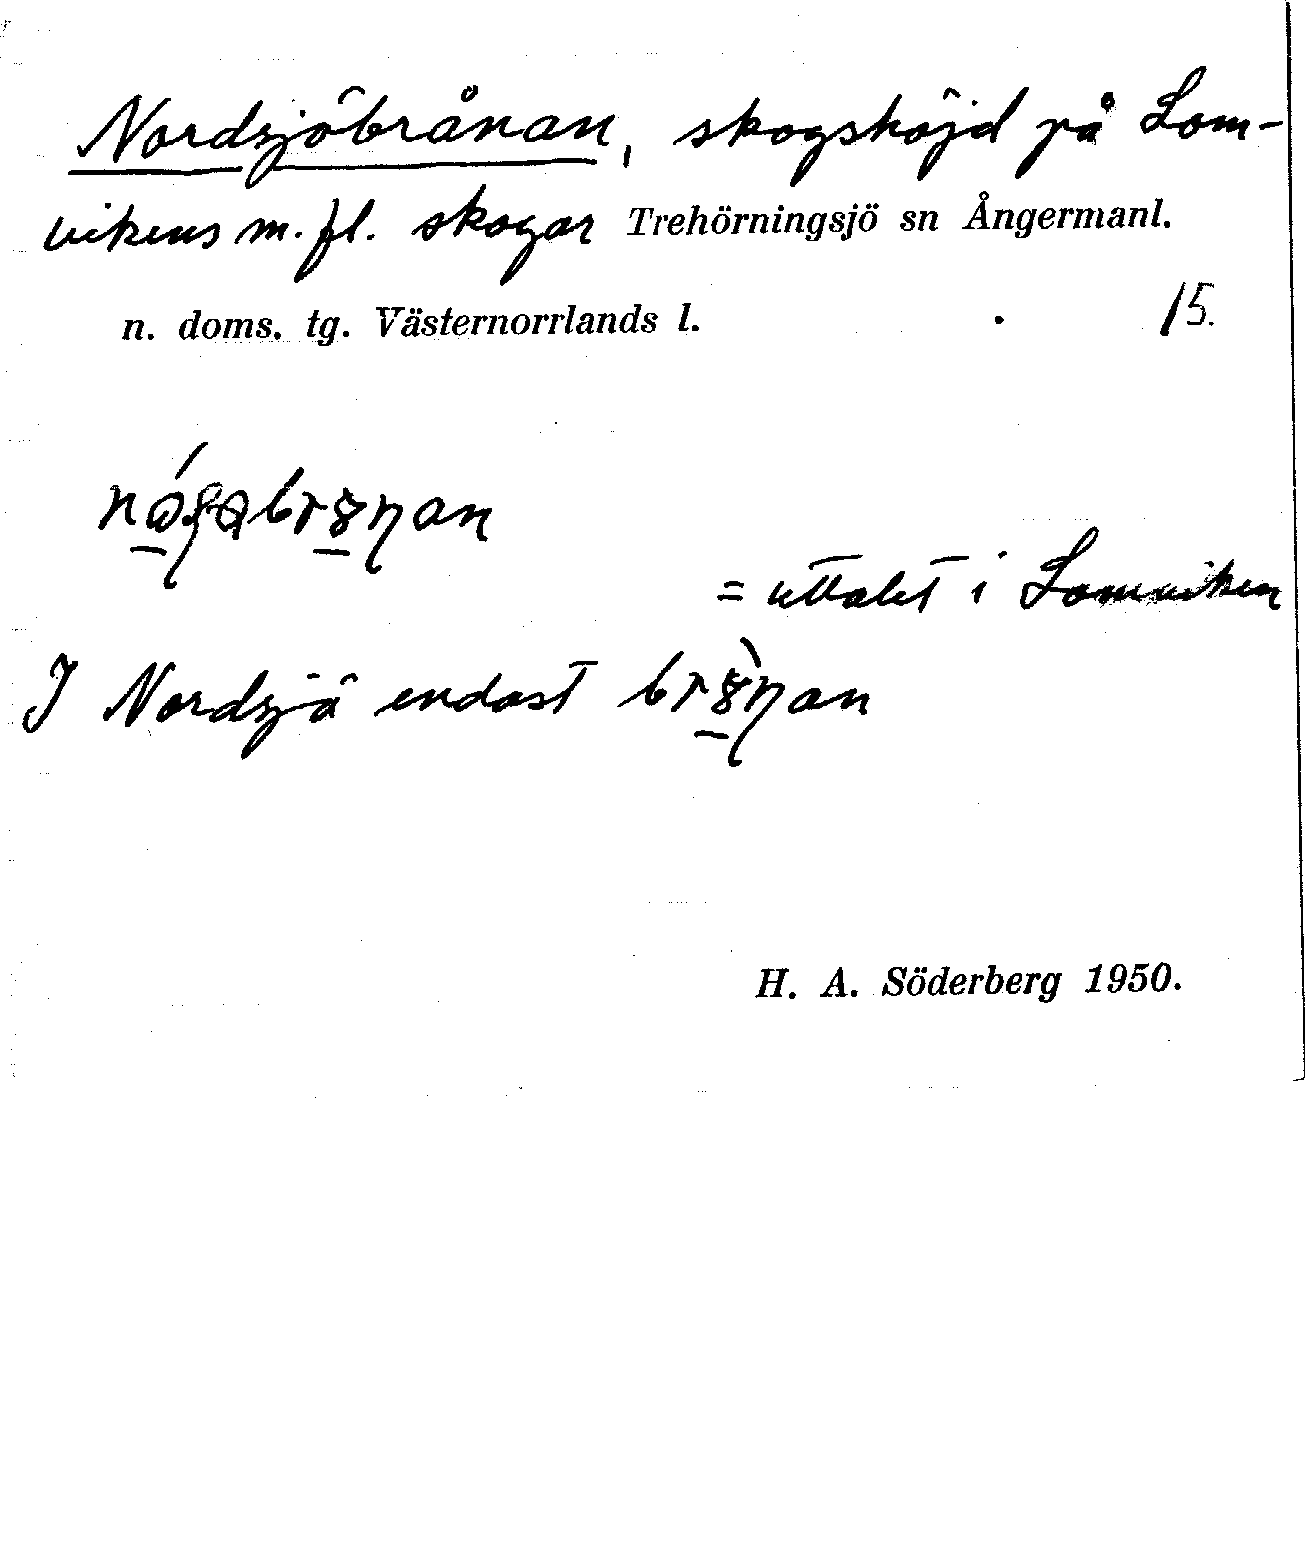 Nordsjöbrånan, skogshöjd på Lom-
vikens m. fl. skogar Trehörningsjö sn Ångermanl.
n. doms. tg. Västernorrlands l. 15.
= uttalet i Lomviken
I Nordsjö endast
H. A. Söderberg 1950.